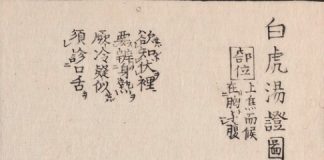 白虎湯證圖
部位
上焦而候
在胸少腹
欲知伏裡
要辨身熱
厥冷疑似
須診口舌